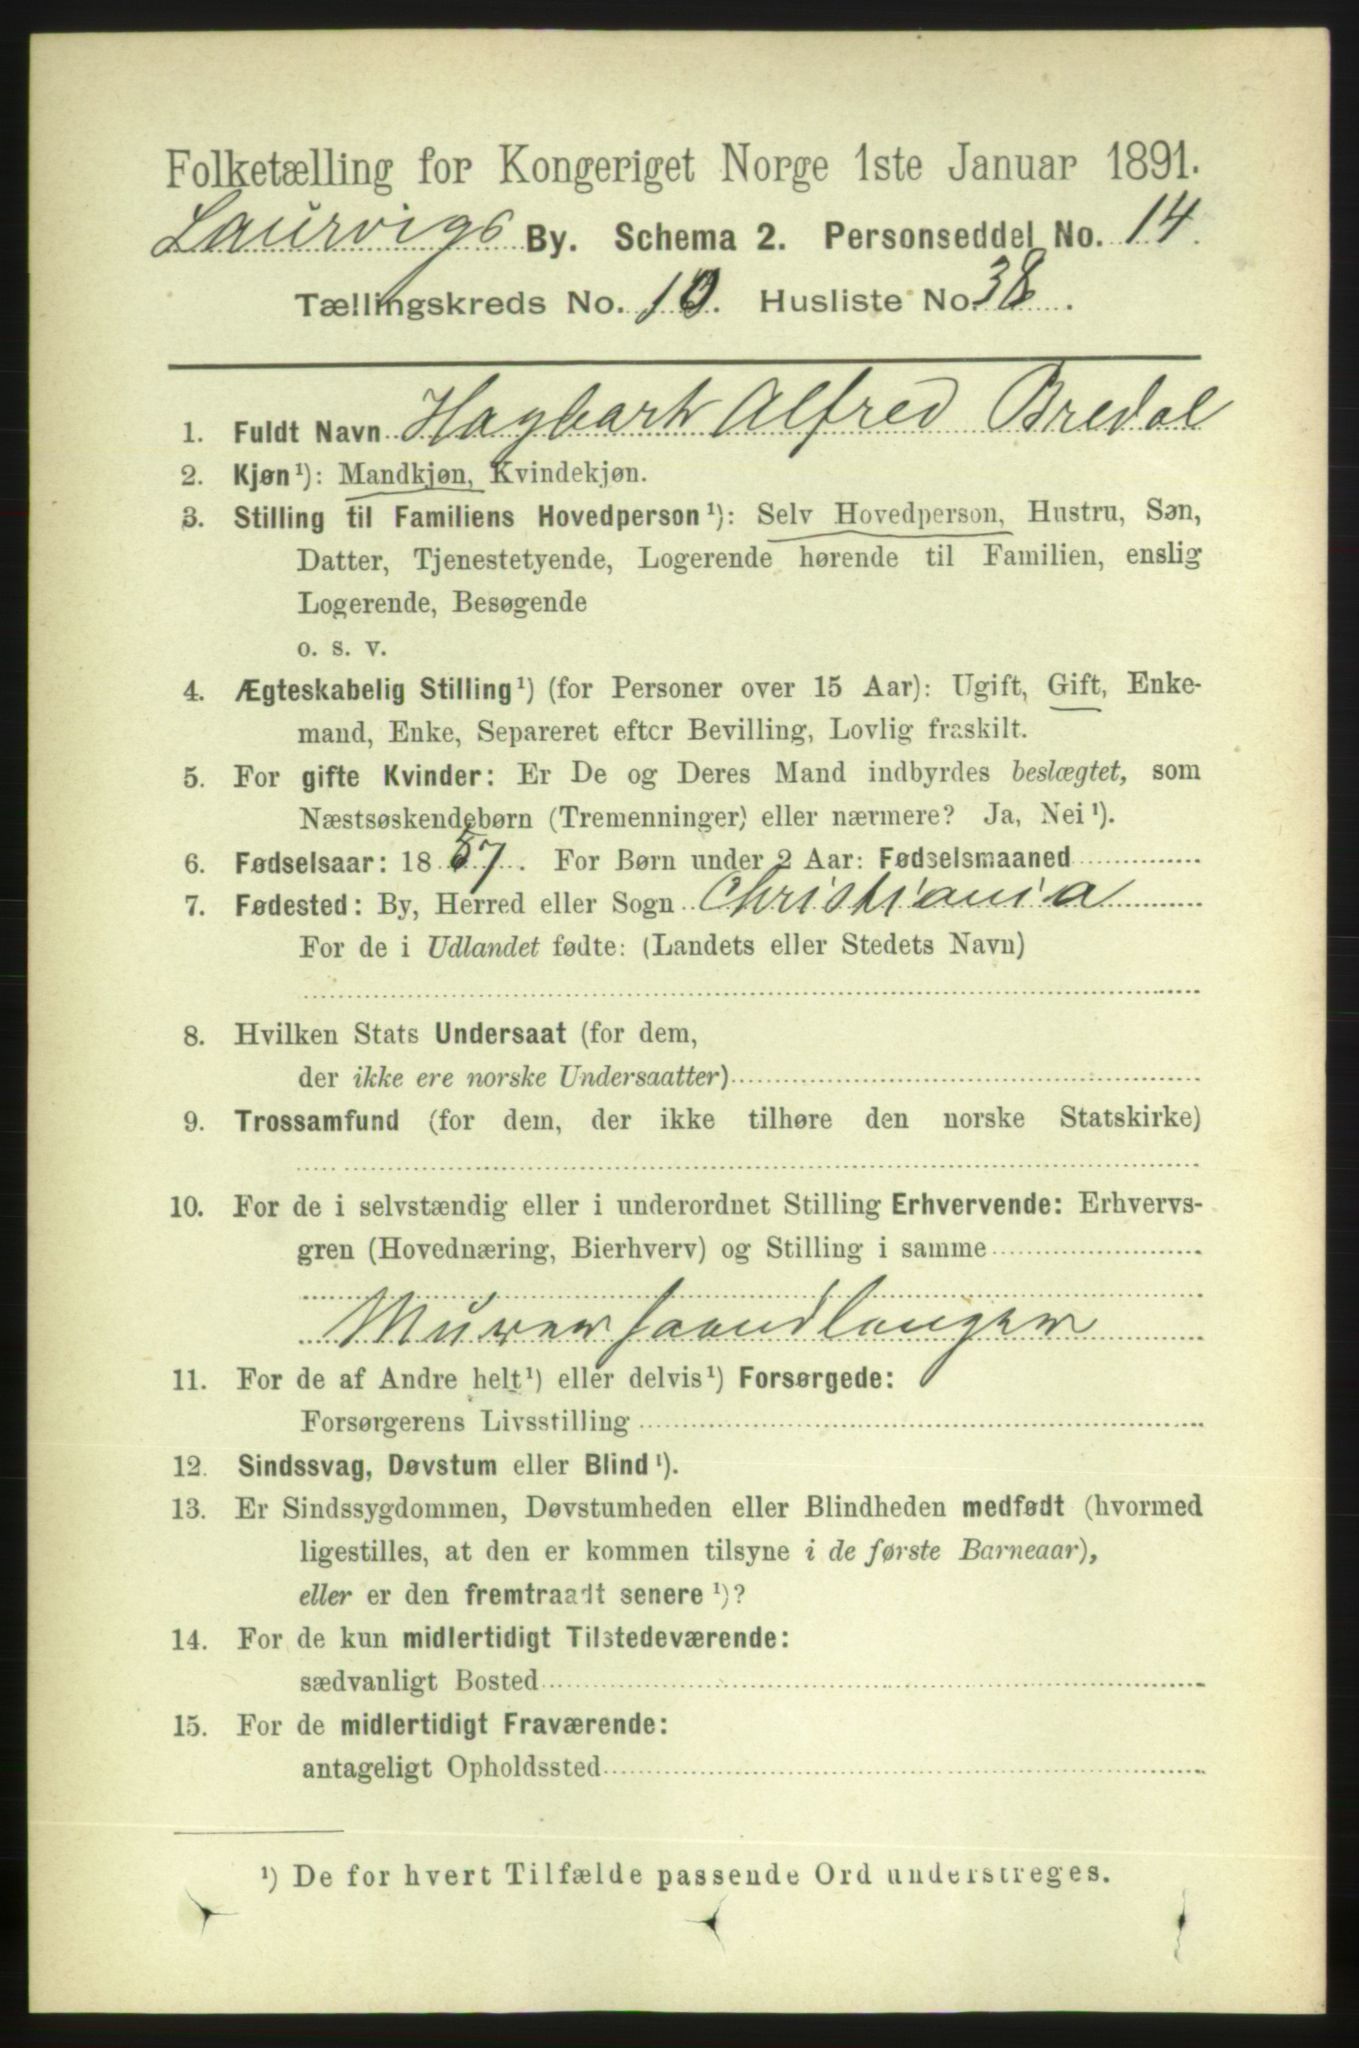 Folketælling for Kongeriget Norge 1ste Januar 1891.
Laurvigs By. Schema 2. Personseddel No. 14.
Tællingskreds No. 10. Husliste No. 38.
1. Fuldt Navn Hagbart Alfred Bredal
2. Kjøn¹): Mandkjøn, Kvindekjøn.
3. Stilling til Familiens Hovedperson¹): Selv Hovedperson, Hustru, Søn,
Datter, Tjenestetyende, Logerende hørende til Familien, enslig
Logerende, Besøgende
o. s. v.
4. Ægteskabelig Stilling¹) (for Personer over 15 Aar): Ugift, Gift, Enke-
mand, Enke, Separeret efter Bevilling, Lovlig fraskilt.
5. For gifte Kvinder: Er De og Deres Mand indbyrdes beslægtet, som
Næstsøskendebørn (Tremenninger) eller nærmere? Ja, Nei¹).
6. Fødselsaar: 1857. For Børn under 2 Aar: Fødselsmaaned
7. Fødested: By, Herred eller Sogn Christiania
For de i Udlandet fødte: (Landets eller Stedets Navn)
8. Hvilken Stats Undersaat (for dem,
der ikke ere norske Undersaatter)
9. Trossamfund (for dem, der ikke tilhøre den norske Statskirke)
10. For de i selvstændig eller i underordnet Stilling Erhvervende: Erhvervs-
gren (Hovednæring, Bierhverv) og Stilling i samme
Murerhaandlanger
11. For de af Andre helt¹) eller delvis¹) Forsørgede:
Forsørgerens Livsstilling
12. Sindssvag, Døvstum eller Blind¹).
13. Er Sindssygdommen, Døvstumheden eller Blindheden medfødt (hvormed
ligestilles, at den er kommen tilsyne i de første Barneaar),
eller er den fremtraadt senere¹)?
14. For de kun midlertidigt Tilstedeværende:
sædvanligt Bosted
15. For de midlertidigt Fraværende:
antageligt Opholdssted
¹) De for hvert Tilfælde passende Ord understreges.